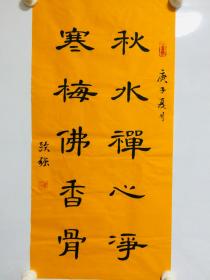 秋水禪心淨
寒梅佛香骨
庚子夏月